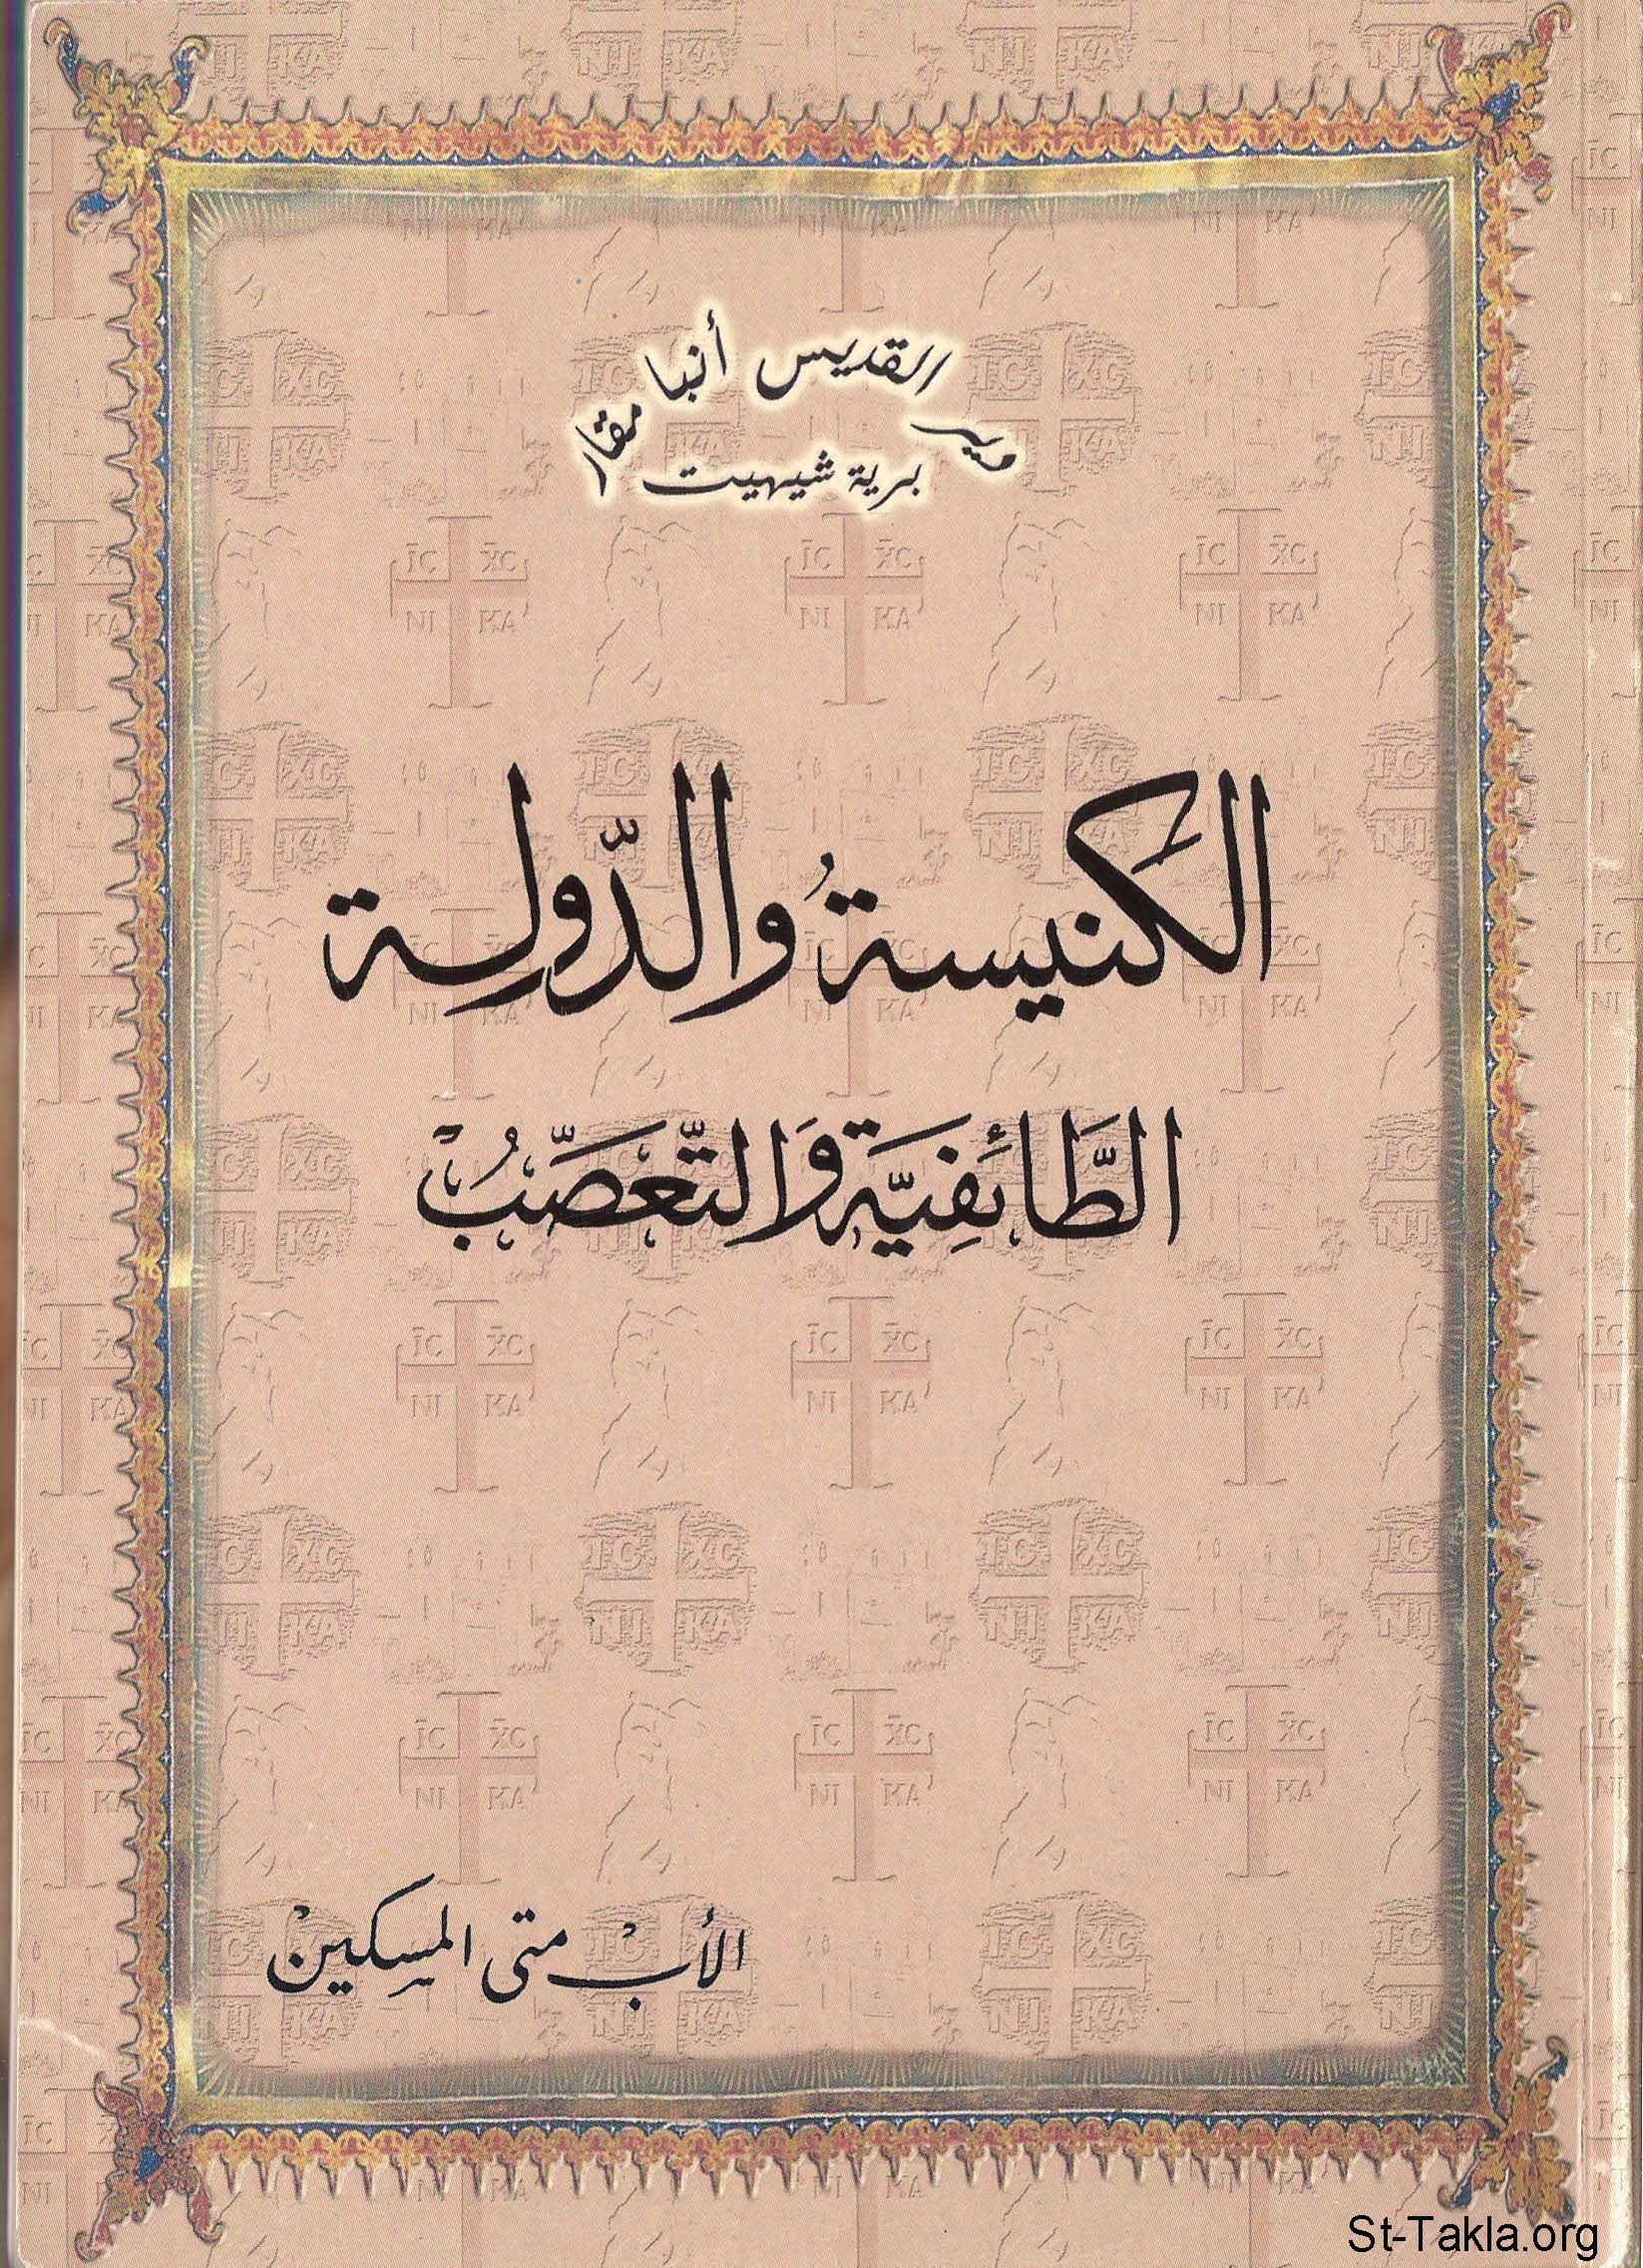 دير القديس أنبا مقار
برية شيهيت
الكنيسةُ والدّولة
الطَّائِفيَّة وَالتّعصّبُ
الأب متى المسكين
St-Takla.org
IC XC
NI KA